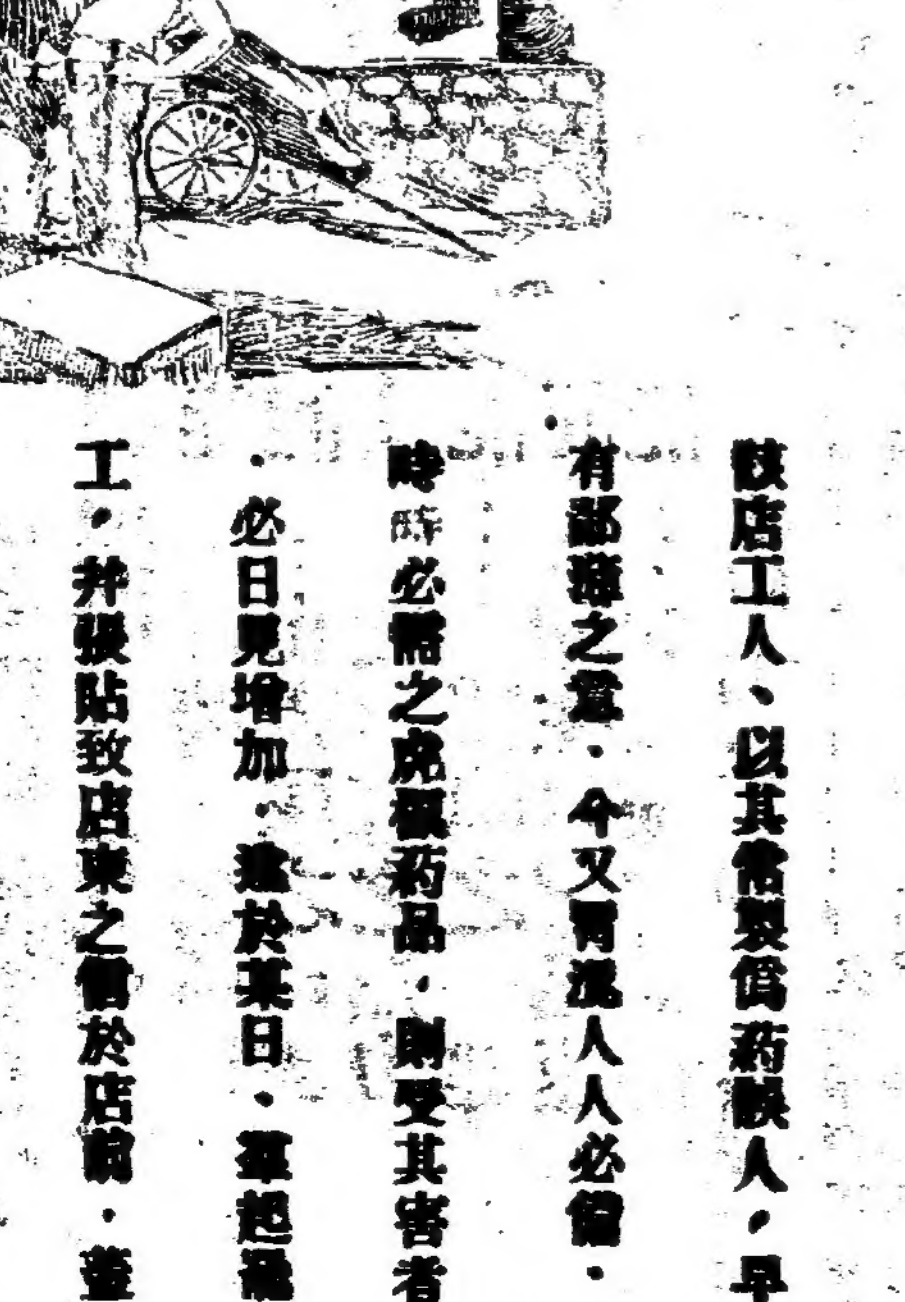 該店工人、以其常製僞药誤人，早
有鄙薄之意．今又冒濫人人必備．
時時必需之虎標药品．則受其害者
．必日見增加．遂於某日、羣起罷
工，并張貼致店東之書於店前．董